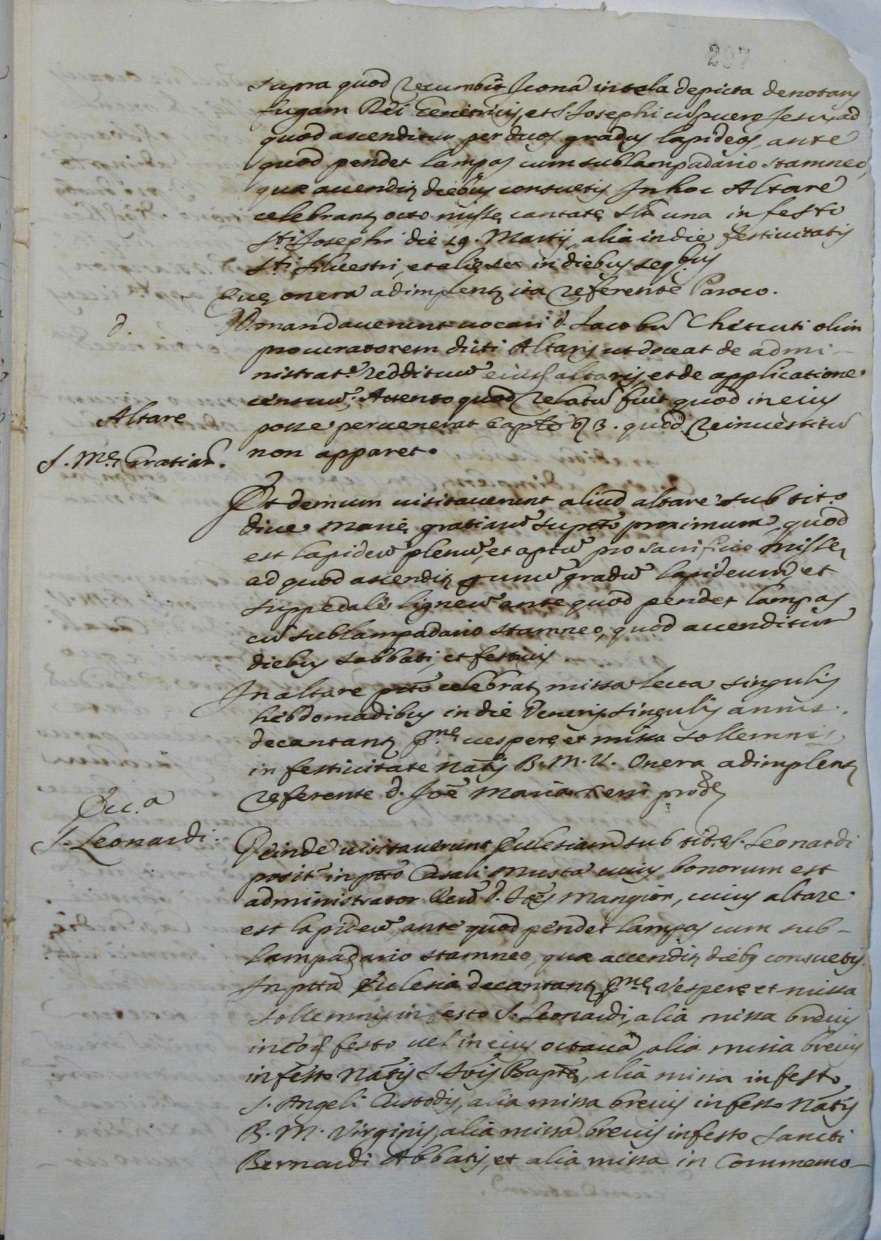 207
supra quod recumbit Icona in tela depicta denotans
fugam Bte Genitricis, et S. Josephi cu puero Jesu, ad
quod ascenditur per duos gradus lapideos ante
quod pendet lampas cum sublampadario stamneo,
quæ accendit diebus consuetis In hoc Altare
celebrant octo misse cantate una in festo
Sti Josephi die 19. Martij, alia in die festivitatis
Sti Silvestri, et alie sex in diebus seqtibus
Que onera adimplent ita referente Paroco.
d. Et mandaverunt vocari d. Jacobu Chetcuti olim
procuratorem dicti Altaris ut doceat de admi-
nistrate reddituu eiusd altaris, et de applicatione
censuu. Attento quod relatu fuit quod in eius
posse pervenerat 3. quod reinvestitu
non apparet.
Altare
S. Me Gratiar.
Et demum visitaverunt aliud altare sub tito
dive Marie gratiaru supto proximum, quod
est lapideu plenu, et aptu pro sacrificio misse,
ad quod ascendit p unu gradu lapideum, et
suppedale ligneu ante quod pendet lampas
cu sublampadario stamneo, quod accenditur
diebus sabbati et festivis
In altare pto celebrat missa lecta singulis
hebdomadibus in die Veneris singulis annis.
decantant pme vespere et missa sollemnis,
in festivitate Natis B. M. V. Onera adimplent
referente d. Joe Maria
Ecc.a
S. Leonardi.
Deinde visitaverunt Ecclesiam sub tit. S. Leonardi
posit in pto Casali Musta cuius bonorum est
administrator Reu d. Joes Mangion, cuius altare
est lapideu ante quod pendet lampas cum sub-
lampadario stamneo, quæ accendit dieb consuetis.
In ptta Ecclesia decantant pme Vespere et missa
sollemnis in festo S. Leonardi, alia missa brevis
in eod festo vel in eius octava alia missa brevis
in festo Natis S. Jois Bapte, alia missa in festo
S. Angeli Custodis, alia missa brevis in festo Natis
B. M. Virginis, alia missa brevis in festo Sancti
Bernardi Abbatis, et alia missa in Commemo-